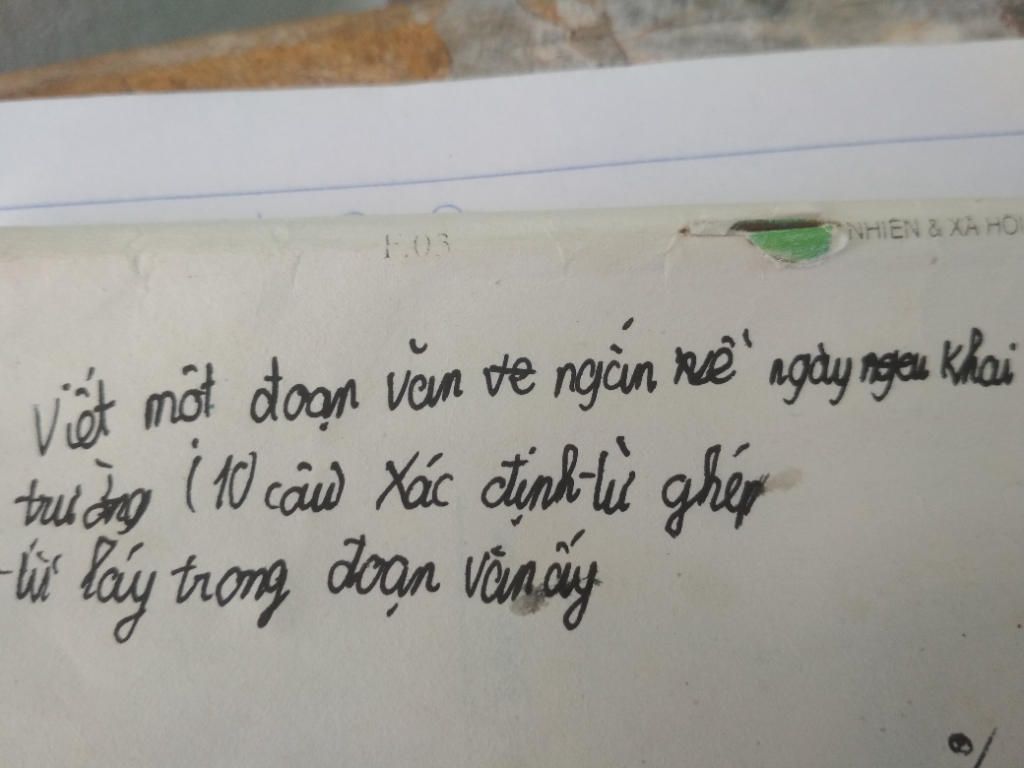 F.03
NHIÊN & XÃ HỘI
Viết một đoạn văn ngắn về ngày khai
trường (10 câu) Xác định từ ghép
từ láy trong đoạn văn ấy